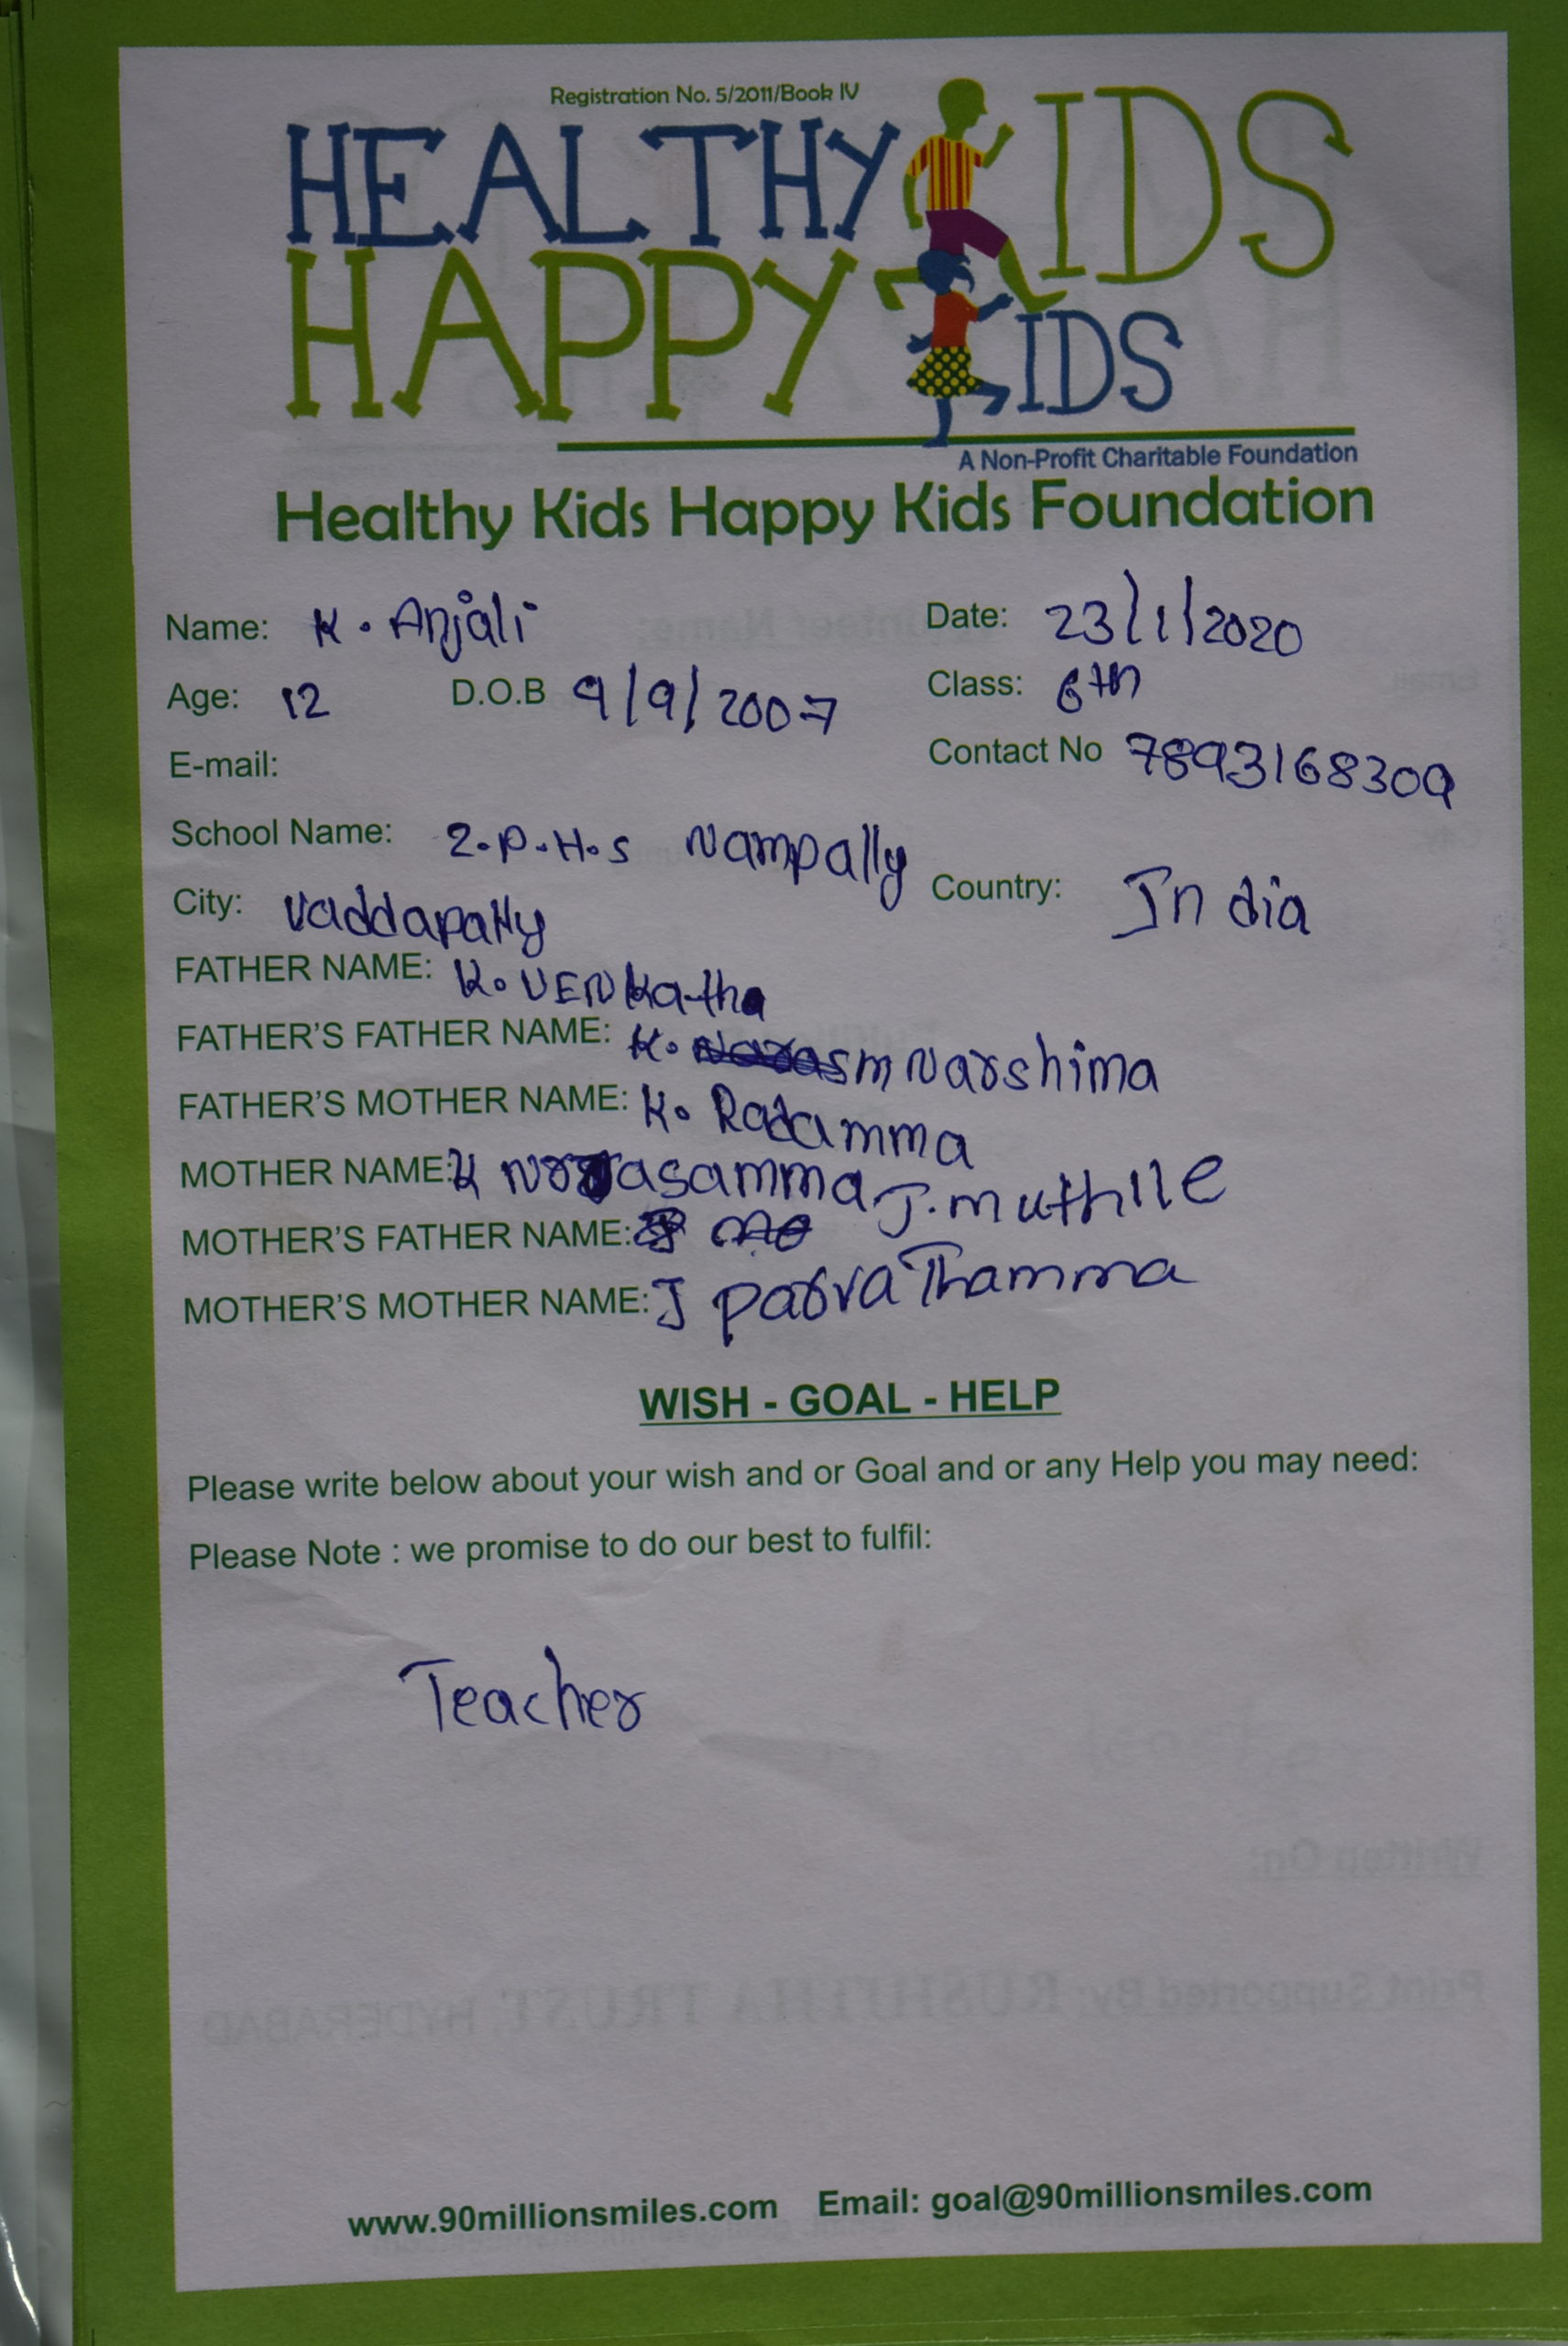 Registration No. 5/2011/Book IV
HEALTHY KIDS
HAPPY KIDS
A Non-Profit Charitable Foundation
Healthy Kids Happy Kids Foundation
Name: K. Anjali Date: 23/1/2020
Age: 12 D.O.B 9/9/2007 Class: 6th
E-mail: Contact No 7893168309
School Name: Z.P.H.S Nampally
City: Vaddapally Country: India
FATHER NAME: K. VENKatha
FATHER'S FATHER NAME: K. Narshima
FATHER'S MOTHER NAME: K.
MOTHER NAME: K
MOTHER'S FATHER NAME: J. muthile
MOTHER'S MOTHER NAME: J parvaThamma
WISH - GOAL - HELP
Please write below about your wish and or Goal and or any Help you may need:
Please Note : we promise to do our best to fulfil:
Teacher
Written On:
Print Supported By: RUSHITHA TRUST, HYDERABAD
www.90millionsmiles.com Email: goal@90millionsmiles.com